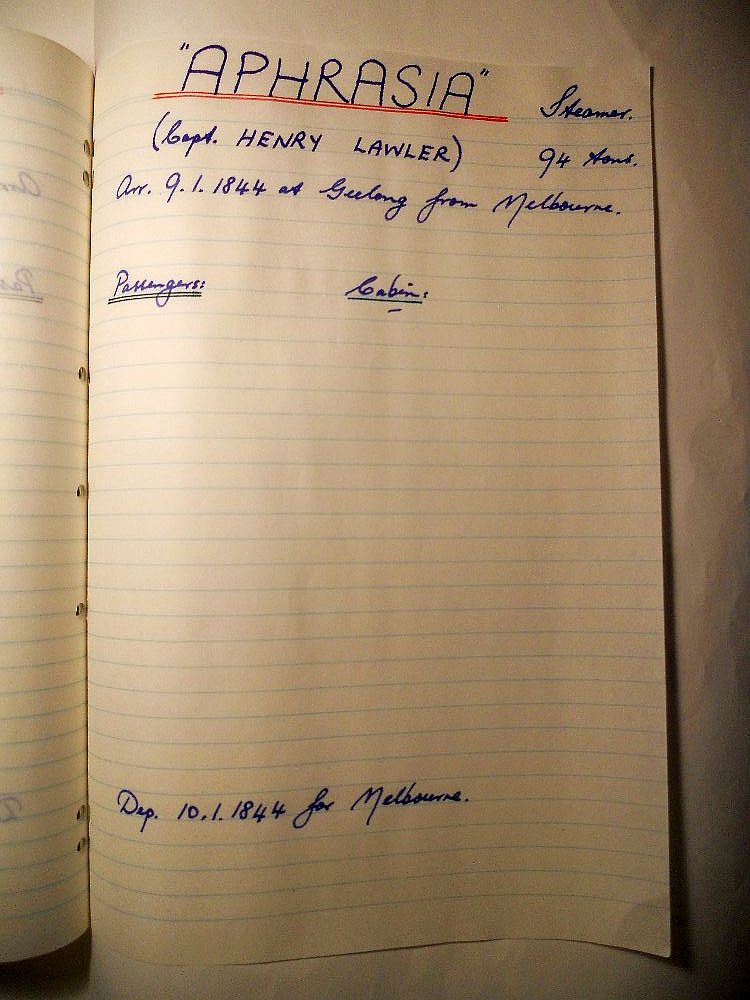 "APHRASIA" Steamer.
(Capt. HENRY LAWLER) 94 tons.
Arr. 9.1.1844 at Geelong from Melbourne.
Passengers: Cabin:
Dep. 10.1.1844 for Melbourne.